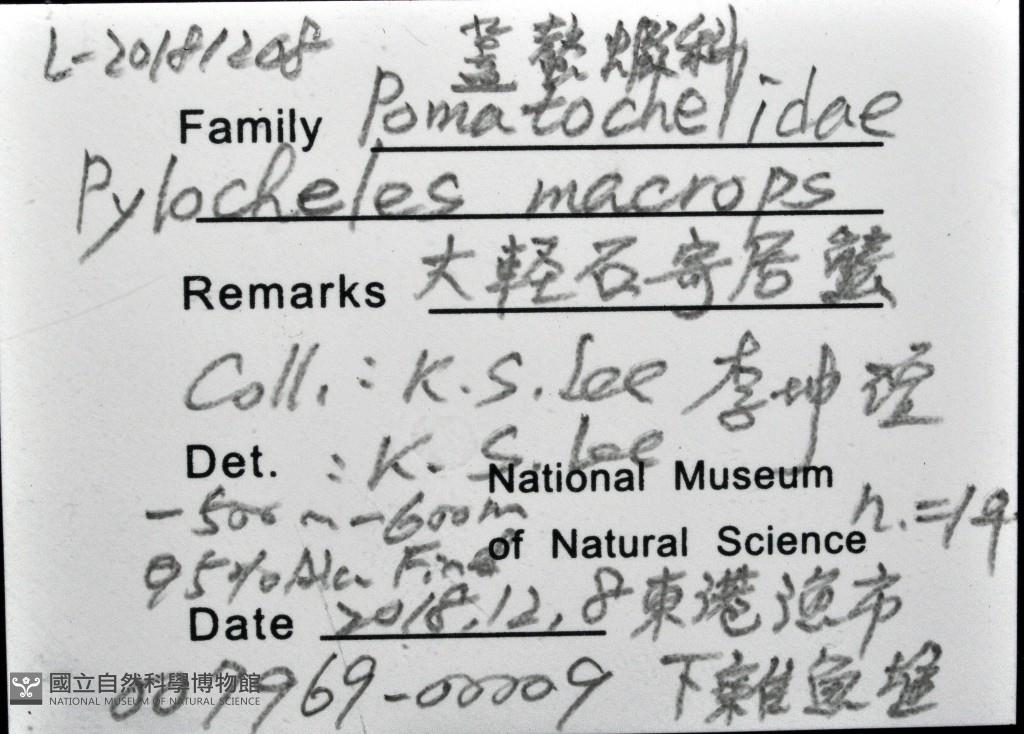 L-20181208 蓋螯蝦科
Family Pomatochelidae
Pylocheles macrops
Remarks 大軽石寄居蟹
Coll.: K.S. Lee 李坤瑄
Det. : K. S. Lee
National Museum
-500m-600m
of Natural Science n.=1
95% Alc. Fixed
Date 2018.12.8 東港漁市
969-00009 下雜魚
國立自然科學博物館
NATIONAL MUSEUM OF NATURAL SCIENCE